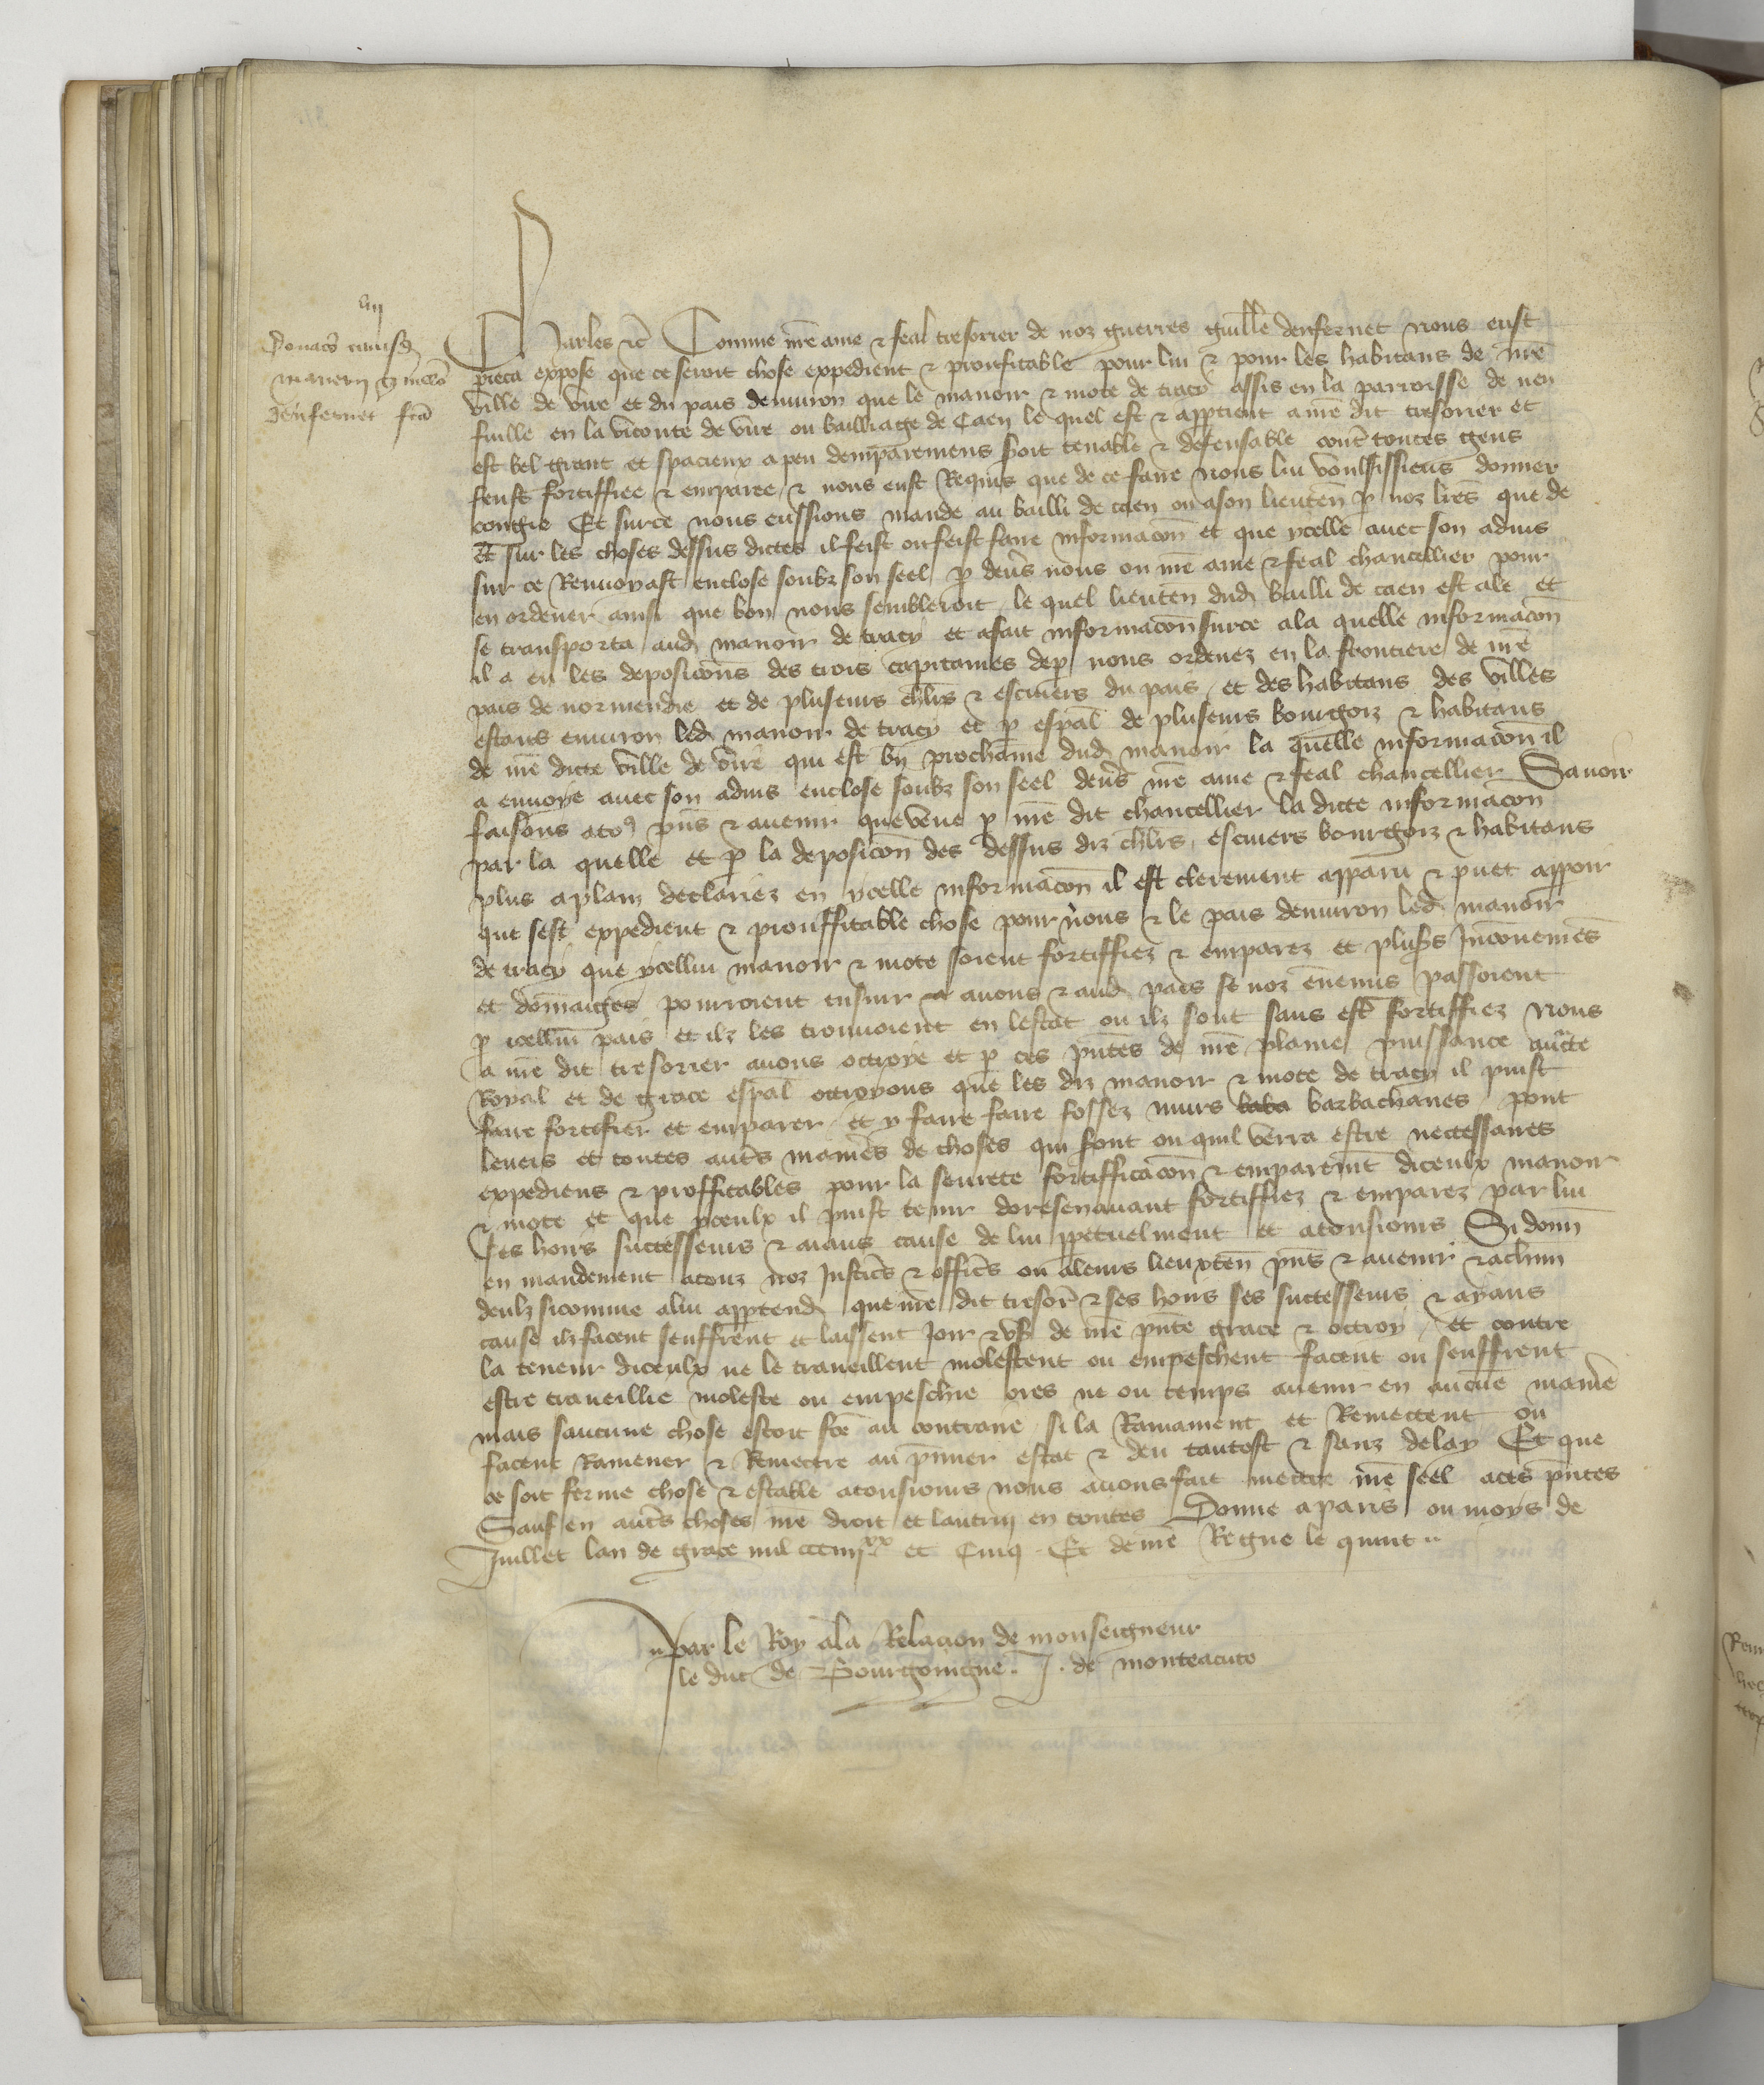 iiij
manerii
denfernet fca
Charles etc Comme nre ame & feal tresorier de noz guerres guille denfernet nous eust
pieca expose que ce seroit chose expedient & prouffitable pour lui & pour les habitans de nre
ville de vire et du pais denuiron que le manoir & mote de tracy assis en la parroisse de neu
fuille en la viconte de vire ou bailliage de Caen le quel est & apptient a nre dit tresorier et
est bel grant et spacieux a peu demparemens soit tenable & defensable contre toutes gens
feust fortiffiee & emparee & nous eust Requis que de ce faire nous lui voulsissiens donner
congie Et surce nous eussions mande au bailli de caen ou a son lieuten p noz lres que de
et sur les choses dessus dictes il feist ou feist faire informacon et que ycelle auec son aduis
sur ce Renuoyast enclose soubz son seel p deuers nous ou nre ame & feal chancellier pour
en ordener ainsi que bon nous sembleroit le quel lieuten dud bailli de caen est ale et
se transporta aud manoir de tracy et a fait informacon surce a la quelle informacon
il a eu les deposicons des trois capitaines dep nous ordenez en la frontiere de nre
pais de normendie et de pluseurs chlrs & escuiers du pais et des habitans des villes
estans enuiron led manoir de tracy et p espal de pluseurs bourgoiz & habitans
de nre dicte ville de vire qui est bn prochaine dud manoir la quelle informacon il
a enuoye auec son aduis enclose soubz son seel deuers nre ame & feal chancellier Sauoir
faisons a tos pns & auenir que veue p nre dit chancellier la dicte informacon
par la quelle et p la deposicon des dessus diz chlrs escuiers bourgoiz & habitans
plus a plain declariez en ycelle informacon il est clerement apparu & puet apparoir
que sest expedient & prouffitable chose pour nous & le pais denuiron led manoir
de tracy que ycellui manoir & mote soient fortiffiez & emparez et plusrs Inconueniens
et dommaiges pourroient ensuir a nous & aud pais se noz ennemis passoient
p icellui pais et ilz les trouuoient en lestat ou ilz sont sans estre fortiffiez Nous
a nre dit tresorier auons octroye et p ces pntes de nre plaine puissance auctte
Royal et de grace espal octroyons que les diz manoir & mote de tracy il puist
faire fortifier et emparer et y faire faire fossez murs baba barbachanes pont
leueis et toutes autres manieres de choses qui sont ou quil verra estre neccessaires
expediens & proffitables pour la seurete fortifficacon & emparemt diceulx manoir
& mote et que yceulx il puist tenir doresenauant fortiffiez & emparez par lui
ses hoirs successeurs & aians cause de lui ppetuelment et a tousiours Si donn
en mandement a touz noz Justicrs & officrs ou a leurs lieuxten pns & auenir & a chun
deulz sicomme a lui apptend que nre dit tresorr & ses hoirs ses successeurs & ayans
cause ilz facent seuffrent et laissent Joir & vs de nre pnte grace & octroy et contre
la teneur diceulx ne le traueillent molestent ou empeschent facent ou seuffrent
estre traueillie moleste ou empeschie ores ne ou temps auenir en aucune maniere
mais saucune chose estoit fce au contraire si la Ramainent et Remettent ou
facent Ramener & Remettre au pmier estat & deu tantost & sanz delay Et que
ce soit ferme chose & estable a tousiours nous auons fait mettre nre seel a ces pntes
Sauf en autres choses nre droit et lautruy en toutes Donne a paris ou moys de
Juillet lan de grace mil ccciiijxx et Cinq Et de nre Regne le quint
par le Roy a la Relacion de monseigneur
le duc de Bourgoingne. J. de monteacuto